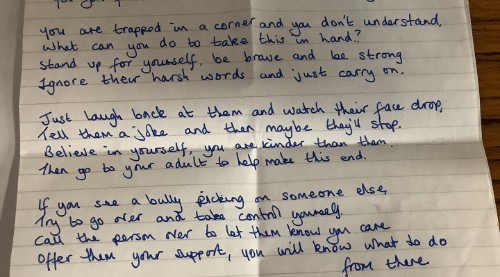 You are trapped in a corner and you don't understand,
What can you do to take this in hand?
Stand up for yourself. be brave and be strong
Ignore their harsh words and just carry on.
Just laugh back at them and watch their face drop,
Tell them a joke and then maybe they'll stop.
Believe in yourself, you are kinder than them.
Then go to your adult to help make this end.
If you see a bully picking on someone else,
Try to go over and take control yourself.
Call the person over to let them know you care
Offer them your support, you will know what to do
from there